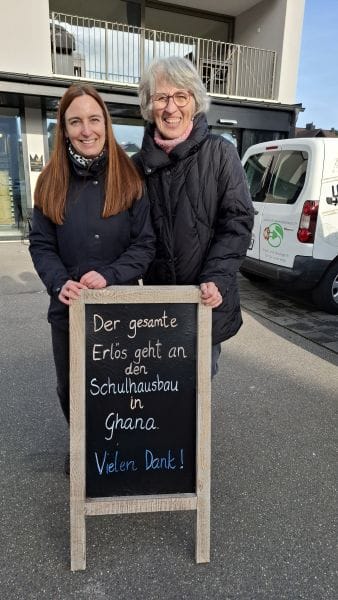 Der gesamte
Erlös geht an
den
Schulhausbau
in
Ghana.
Vielen Dank!